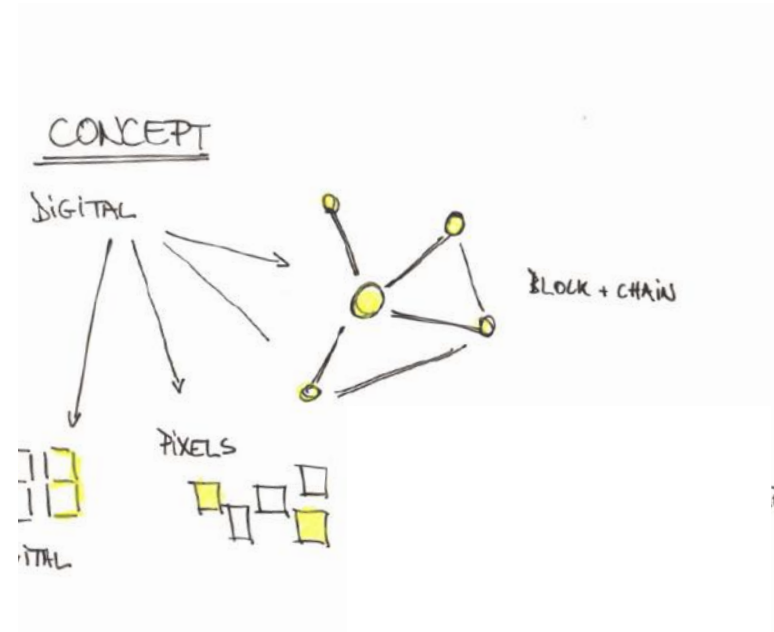 CONCEPT
DiGiTAL
BLOCK + CHAiN
PiXELS
iTAL